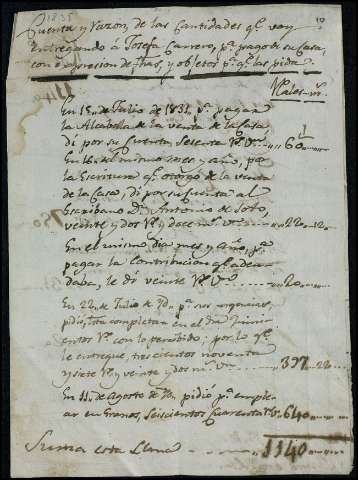 1835
10
Cuenta y Razon, de las Cantidades q.e voy
Entregando á Josefa Carrero, p.a pago de su Casa,
con expresion de fhas, y objetos p.a q.e las pida
Rales. mr.
En 15,, de Julio de 1831, p.a pagar
la Alcabala de la venta de la Casa,
dí por su Cuenta Sesenta R.s V.n ,,60,,
En 16,, del mismo mes y año, por
la Escritura q.e otorgo de la venta
de la Casa, dí por su cuenta al
Escribano D.n Antonio de Soto,
veinte y dos R.s y doce m.s v.n ,,22,,12,,
En el mismo dia mes y año, p.a
pagar la Contribucion q.e adeu
daba, le dí veinte R.s V.n ,,20
En 22,, de Julio de Yd. p.a sus urgencias,
pidió, completar en el dia quini
entos R.s con lo percibido; por lo q.e
le entregue, trescientos noventa
y siete R.s y veinte y dos m.s 397,,22
En 11,, de Agosto de Yd. pidió p.a emple
ar en Granos, Seiscientos Cuarenta R.s 640
Suma esta Llana 1140